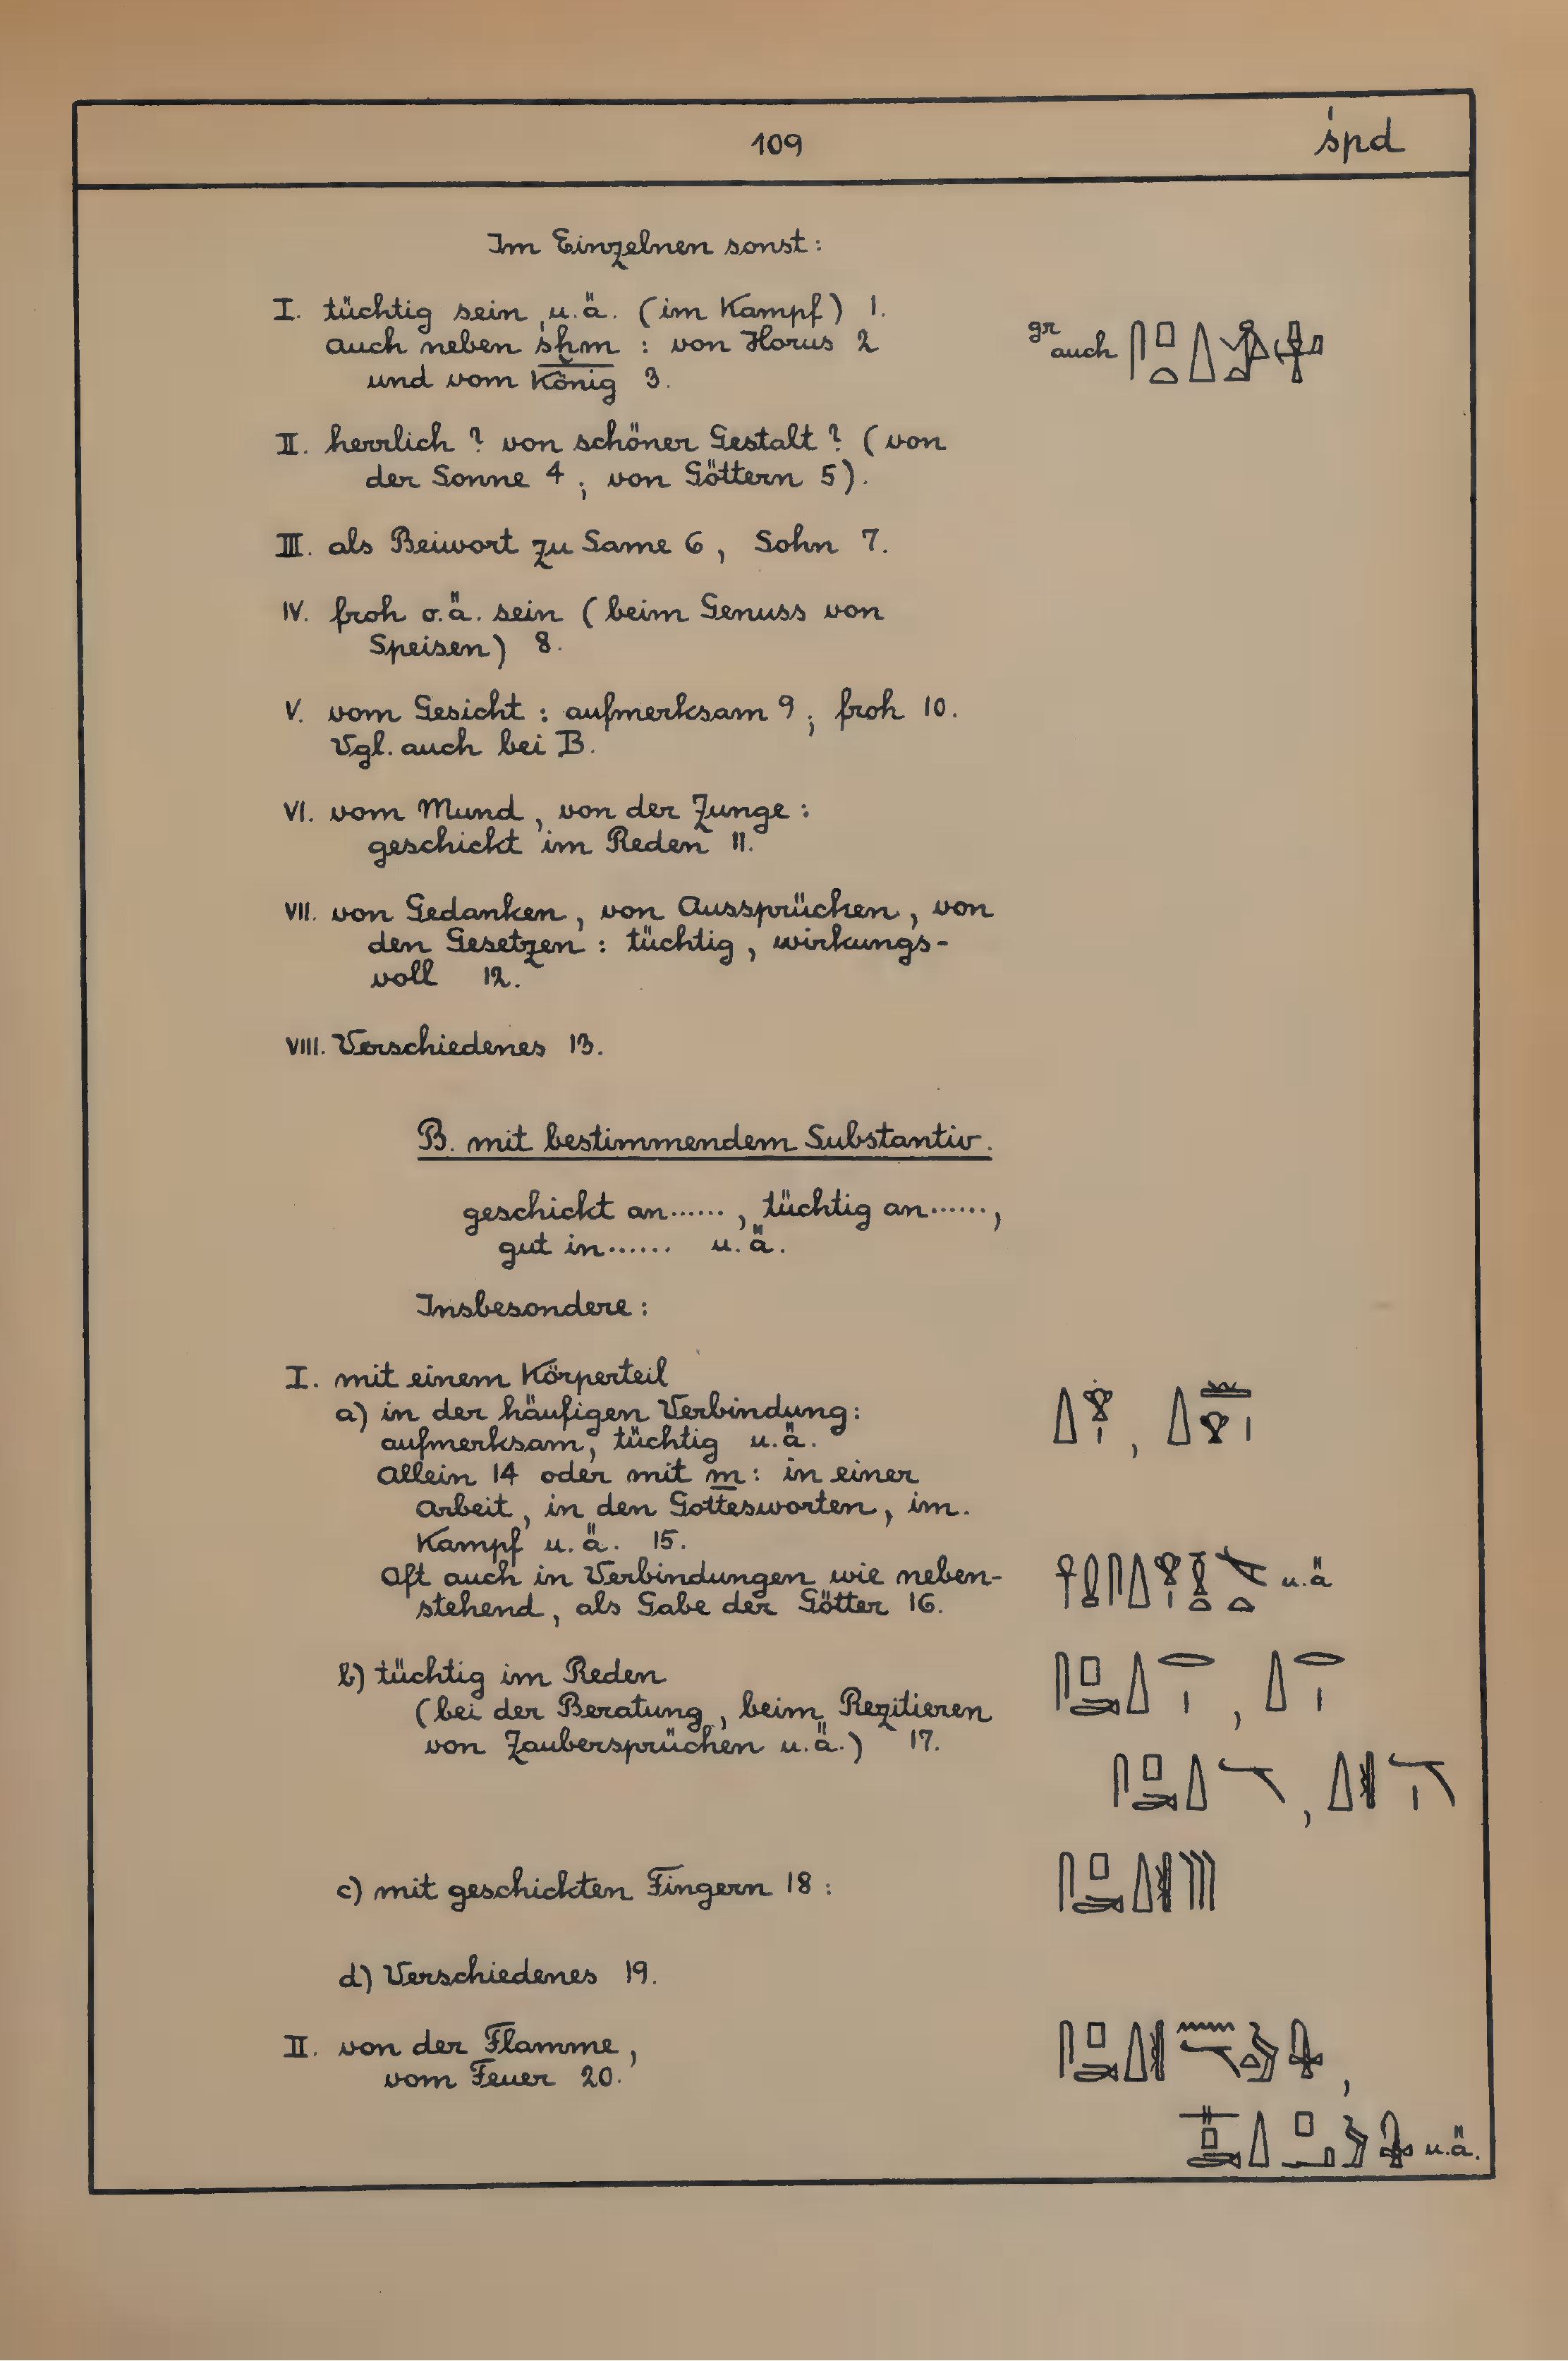 109
śpd
Im Einzelnen sonst:
I. tüchtig sein u.ä. (im Kampf) 1.
auch neben śḫm : von Horus 2
und vom König 3.
gr auch
II. herrlich ? von schöner Gestalt ? (von
der Sonne 4 ; von Göttern 5).
III. als Beiwort zu Same 6, Sohn 7.
IV. froh o.ä. sein (beim Genuss von
Speisen) 8.
V. vom Gesicht : aufmerksam 9 ; froh 10.
Vgl. auch bei B.
VI. vom Mund, von der Zunge :
geschickt im Reden 11.
VII. von Gedanken, von Aussprüchen, von
den Gesetzen : tüchtig, wirkungs-
voll 12.
VIII. Verschiedenes 13.
B. mit bestimmendem Substantiv.
geschickt an......, tüchtig an......,
gut in...... u.ä.
Insbesondere :
I. mit einem Körperteil
a) in der häufigen Verbindung:
aufmerksam, tüchtig u.ä.
Allein 14 oder mit m : in einer
Arbeit, in den Gottesworten, im.
Kampf u.ä. 15.
Oft auch in Verbindungen wie neben- u.ä
stehend, als Gabe der Götter 16.
b) tüchtig im Reden
(bei der Beratung, beim Rezitieren
von Zaubersprüchen u.ä.) 17.
c) mit geschickten Fingern 18 :
d) Verschiedenes 19.
II. von der Flamme,
vom Feuer 20.
u.ä.